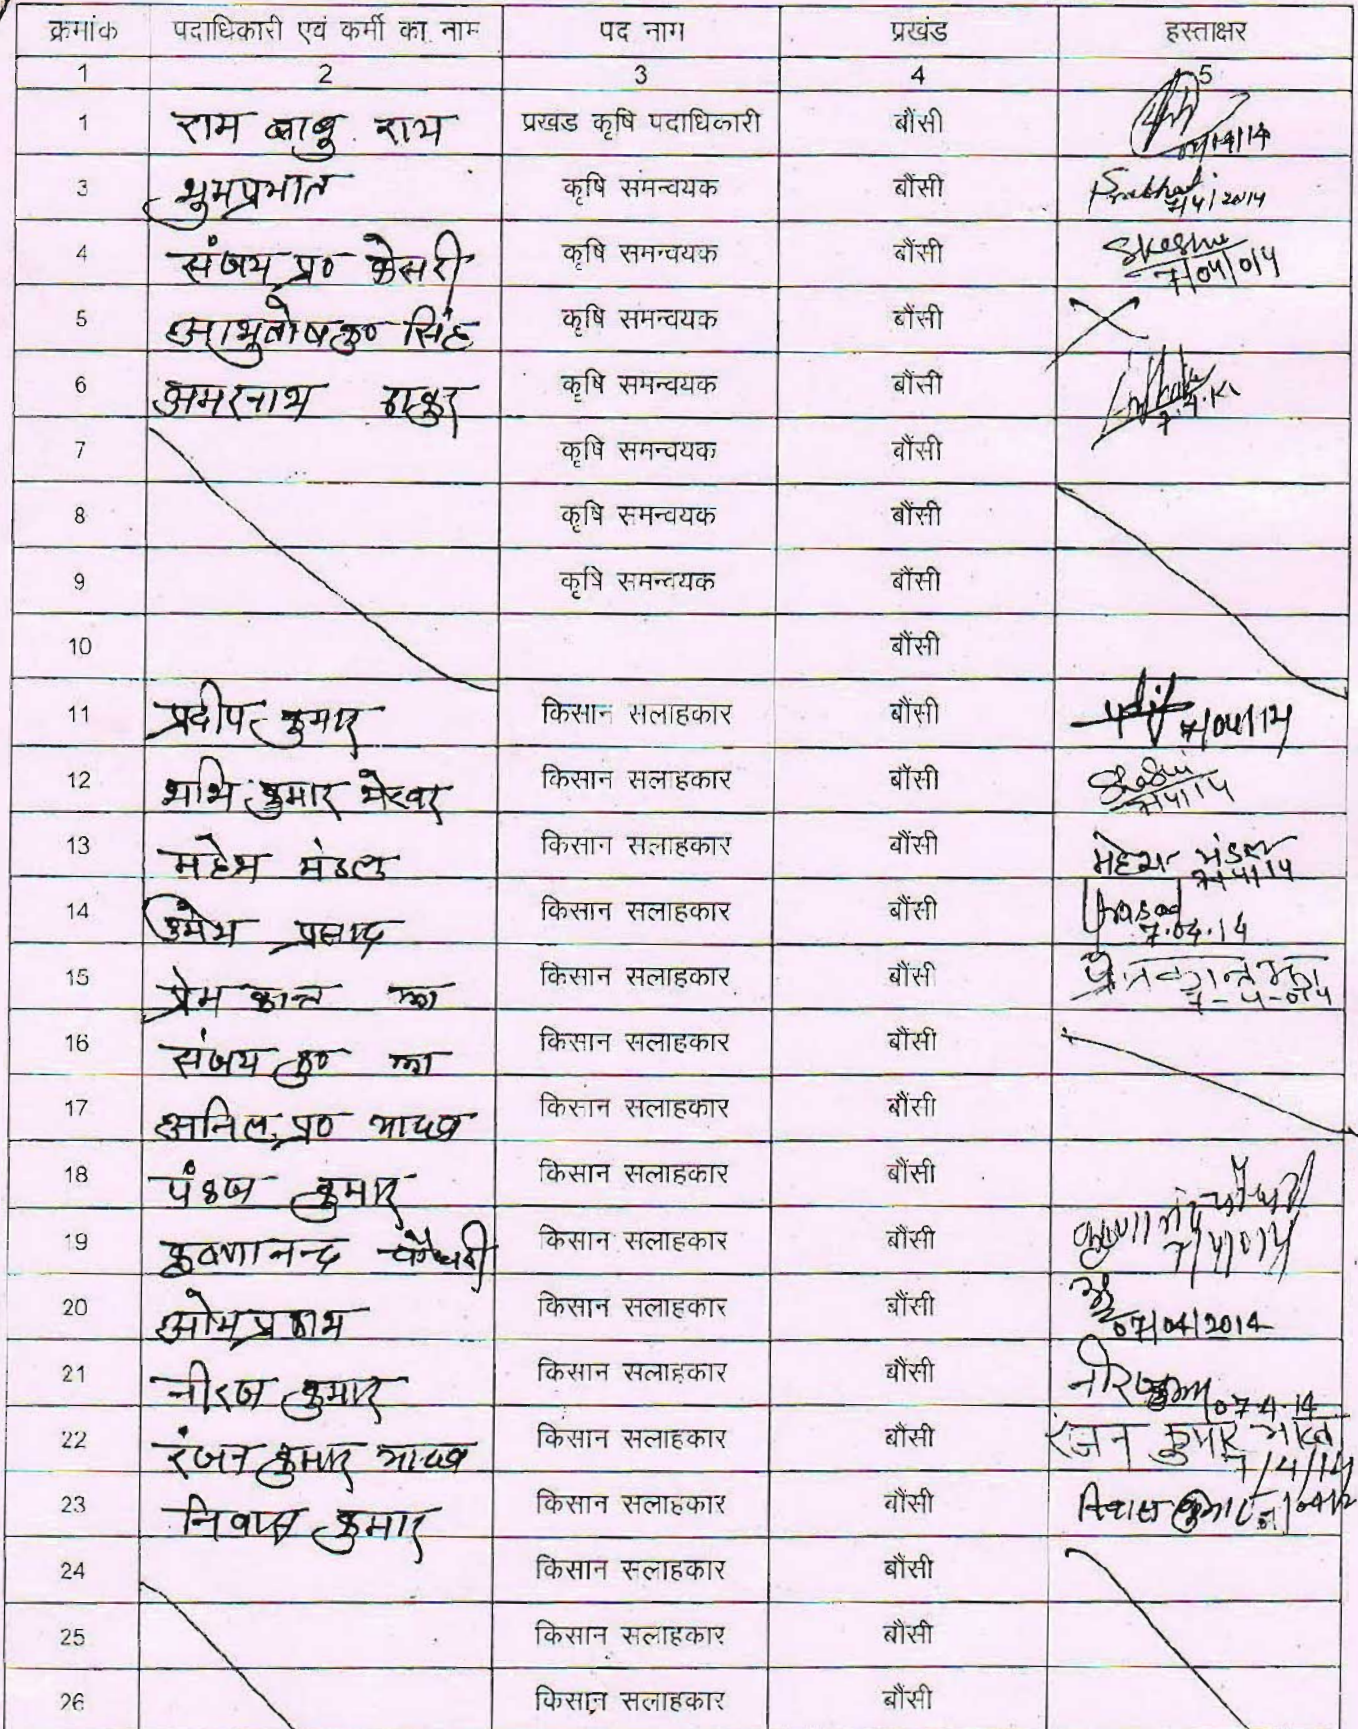 क्रमांक पदाधिकारी एवं कर्मी का नाम पद नाग प्रखंड हस्ताक्षर
1 2 3 4 5
1 राम बाबु राय प्रखंड कृषि पदाधिकारी बौंसी
3 शुभप्रभात कृषि समन्वयक बौंसी Prabhat 7/4/2014
4 संजय प्र० केसरी कृषि समन्वयक बौंसी 7/04/014
5 आशुतोष कु० सिंह कृषि समन्वयक बौंसी
6 अमरनाथ ठाकुर कृषि समन्वयक बौंसी
7 कृषि समन्वयक बौंसी
8 कृषि समन्वयक बौंसी
9 कृषि समन्वयक बौंसी
10 बौंसी
11 प्रदीप कुमार किसान सलाहकार बौंसी 7/04/14
12 शशि कुमार किसान सलाहकार बौंसी Shashi 7/4/14
13 महेश मंडल किसान सलाहकार बौंसी महेश मंडल 7/4/14
14 उमेश प्रसाद किसान सलाहकार बौंसी 7.04.14
15 प्रेम कान्त झा किसान सलाहकार बौंसी प्रेमकान्त झा 7-4-014
16 संजय कु० झा किसान सलाहकार बौंसी
17 अनिल प्र० यादव किसान सलाहकार बौंसी
18 पंकज कुमार किसान सलाहकार बौंसी
19 कृष्णानन्द चौधरी किसान सलाहकार बौंसी 7/4/014
20 ओमप्रकाश किसान सलाहकार बौंसी 07/04/2014
21 नीरज कुमार किसान सलाहकार बौंसी नीरज कुमार 07.4.14
22 रंजन कुमार यादव किसान सलाहकार बौंसी रंजन कुमार यादव 7/4/14
23 निवास कुमार किसान सलाहकार बौंसी निवास कुमार
24 किसान सलाहकार बौंसी
25 किसान सलाहकार बौंसी
26 किसान सलाहकार बौंसी